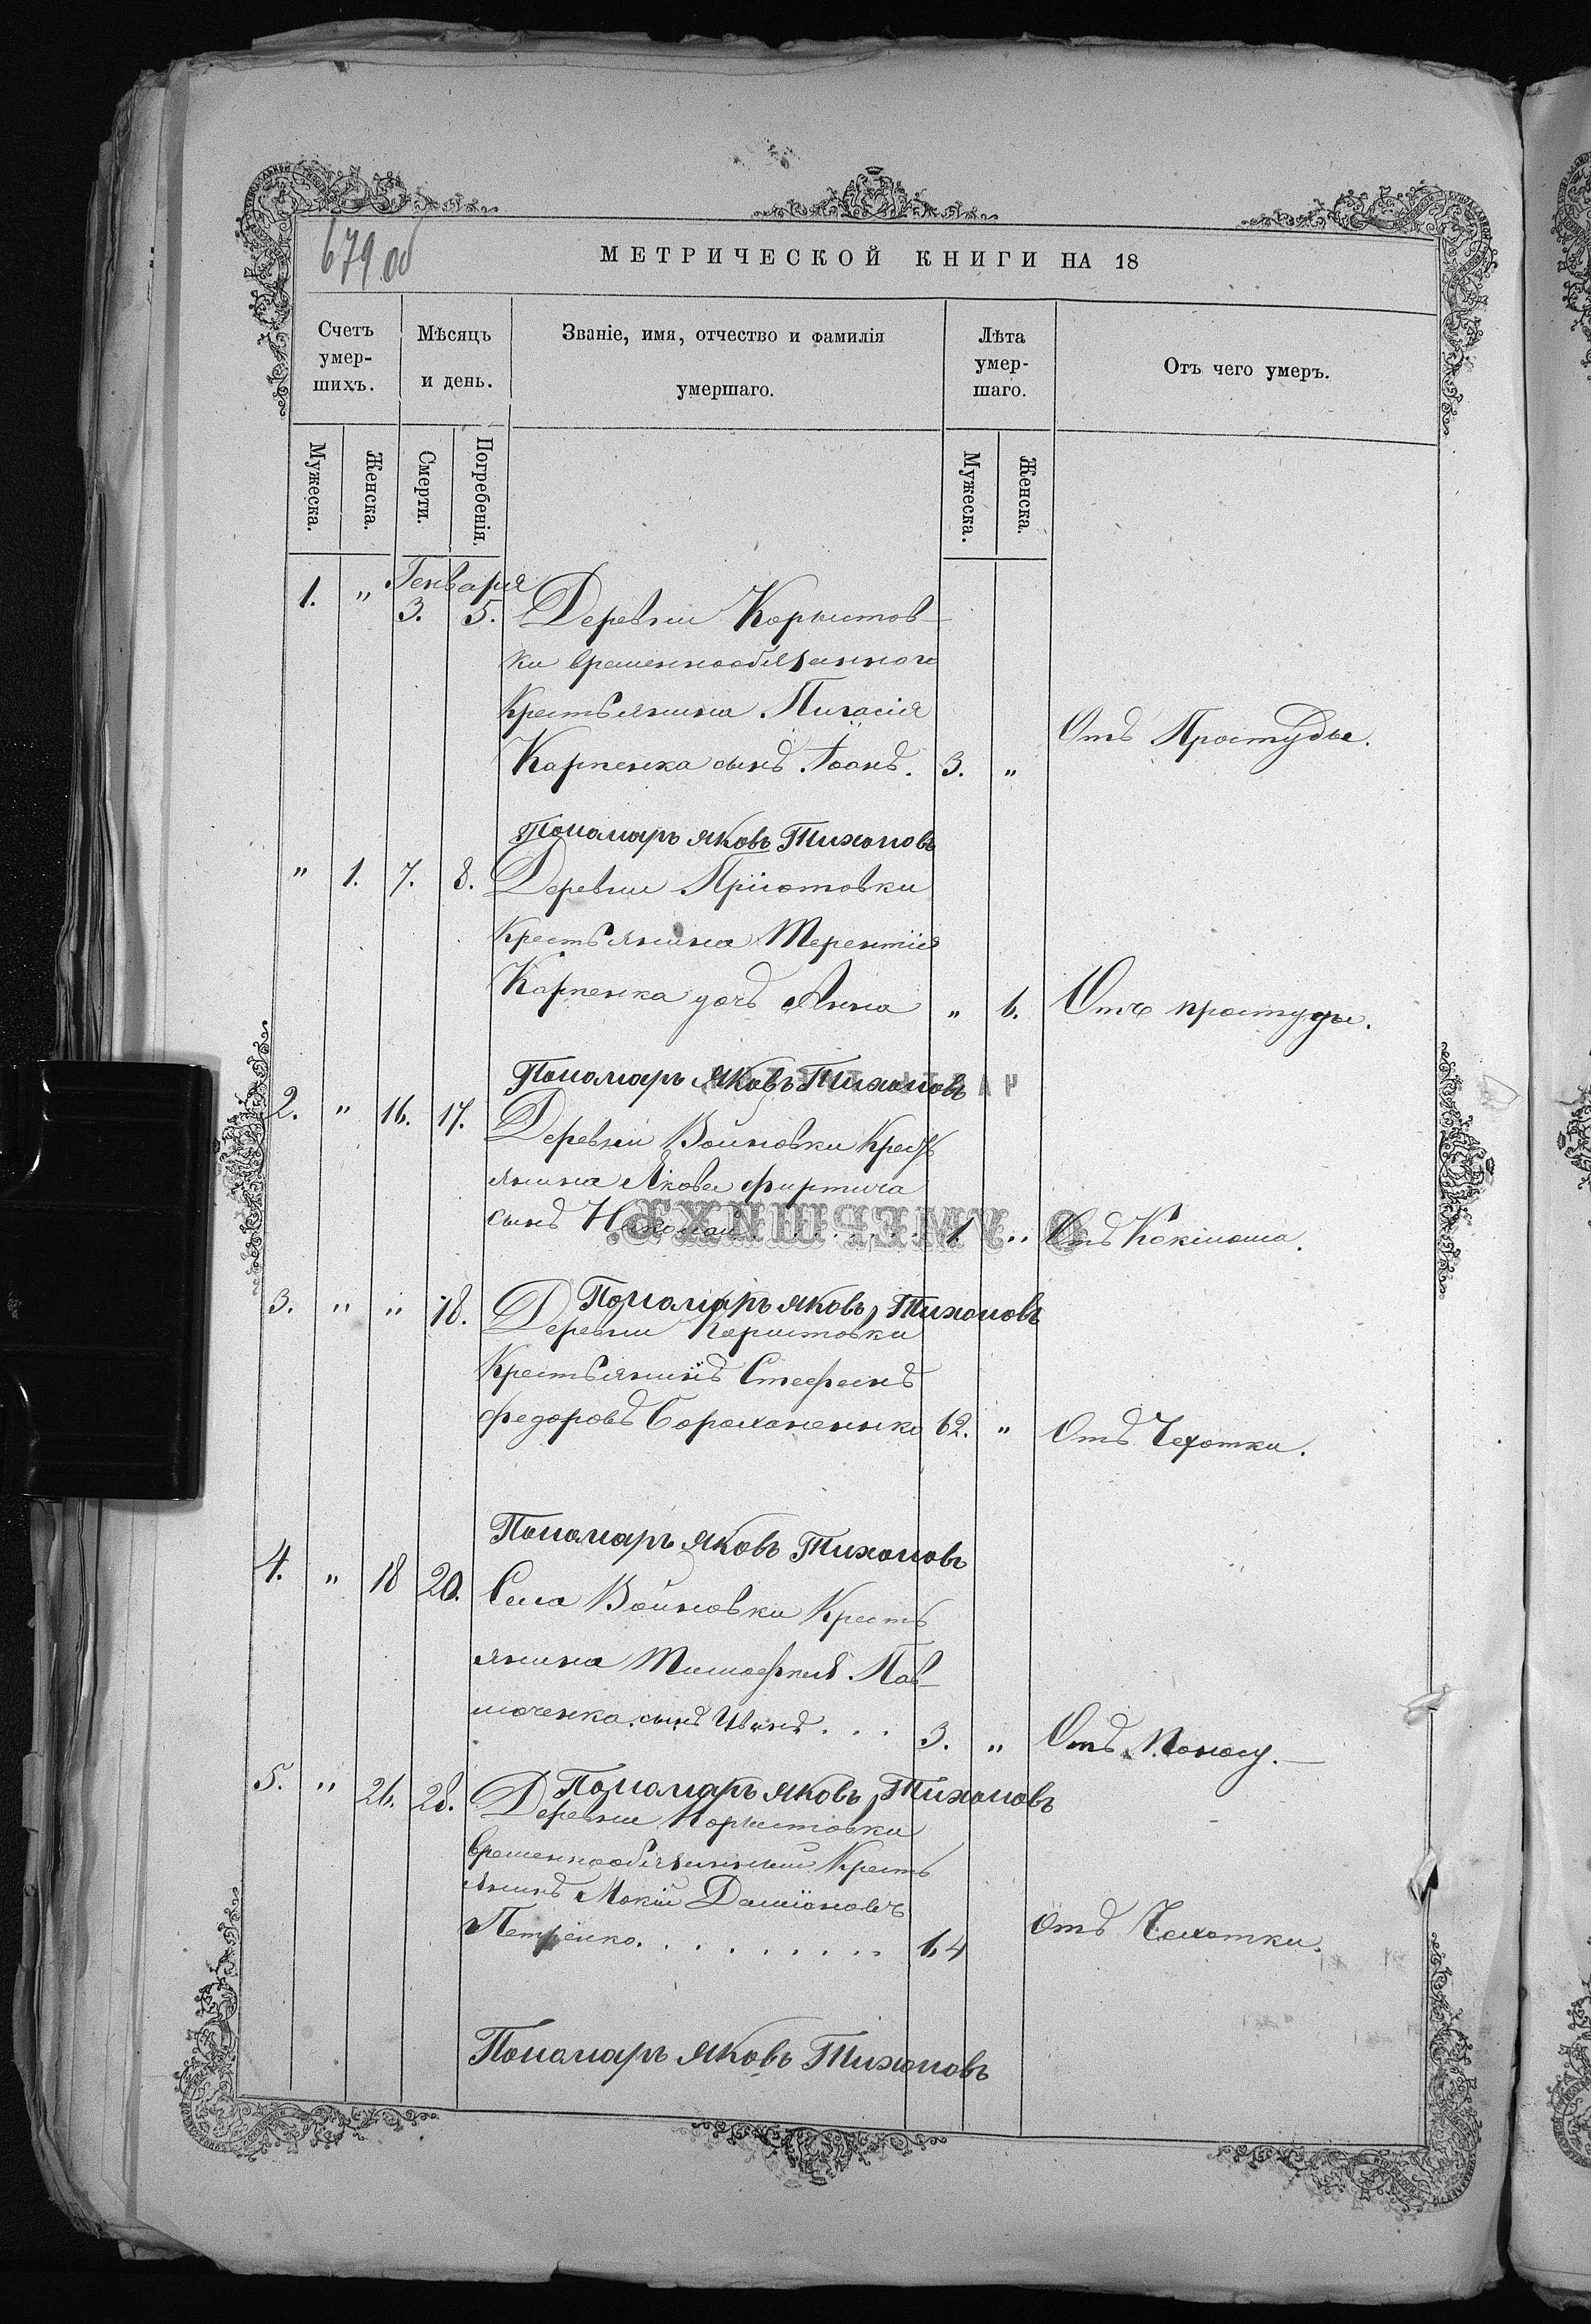 679 об
МЕТРИЧЕСКОЙ КНИГИ НА 18
Счетъ умер-шихъ.
Мѣсяцъ и день.
Званіе, имя, отчество и фамилія умершаго.
Лѣта умер-шаго.
Отъ чего умеръ.
Мужеска.
Женска.
Смерти.
Погребенія.
Мужеска.
Женска.
Генваря
1. " 3. 5. Деревни Корыстов-
ки временнообязаннаго
Крестьянина Пигасія
Карпенка сынъ Іоанъ. 3. " Отъ Простуды.
Пономарь Яковъ Тихоновъ
" 1. 7. 8. Деревни Пріютовки
Крестьянина Терентія
Карпенка дочь Анна " 6. Отъ простуды.
Пономарь Яковъ Тихоновъ
2. " 16. 17. Деревни Войновки Кресть
янина Якова
сынъ Николай 1. " Отъ Коклюша.
Пономарь Яковъ Тихоновъ
3. " " 18. Деревни Користовки
Крестьянинъ Стефанъ
Федоровъ 62. " Отъ Чехотки.
Пономарь Яковъ Тихоновъ
4. " 18 20. Села Войновки Кресть
янина Тимофея Пав-
люченка сынъ Иванъ. . . 3. " Отъ Поносу.
Пономарь Яковъ Тихоновъ
5. " 26. 28. Деревни Корыстовки
временнообязанный Кресть
янинъ Мокій Даміановъ
Петренко. . . . . . . . . 64 Отъ Чехотки.
Пономарь Яковъ Тихоновъ